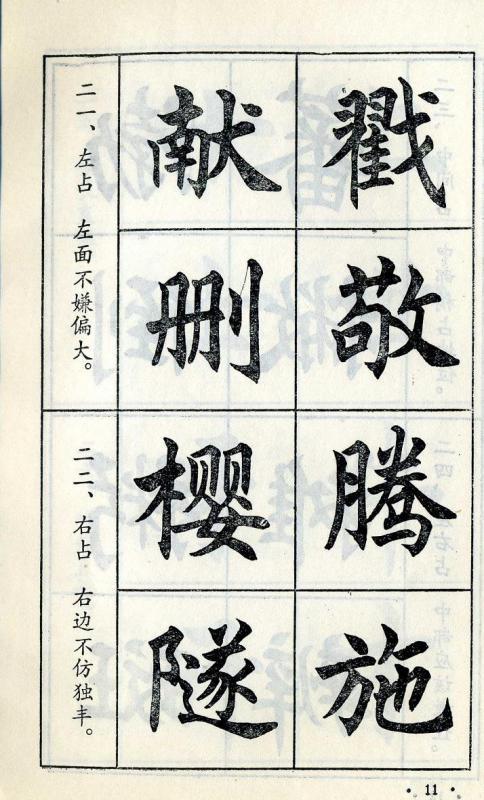 二一、左占 左面不嫌偏大。
献 戳
删 敬
二二、右占 右边不仿独丰。
樱 腾
隧 施
· 11 ·